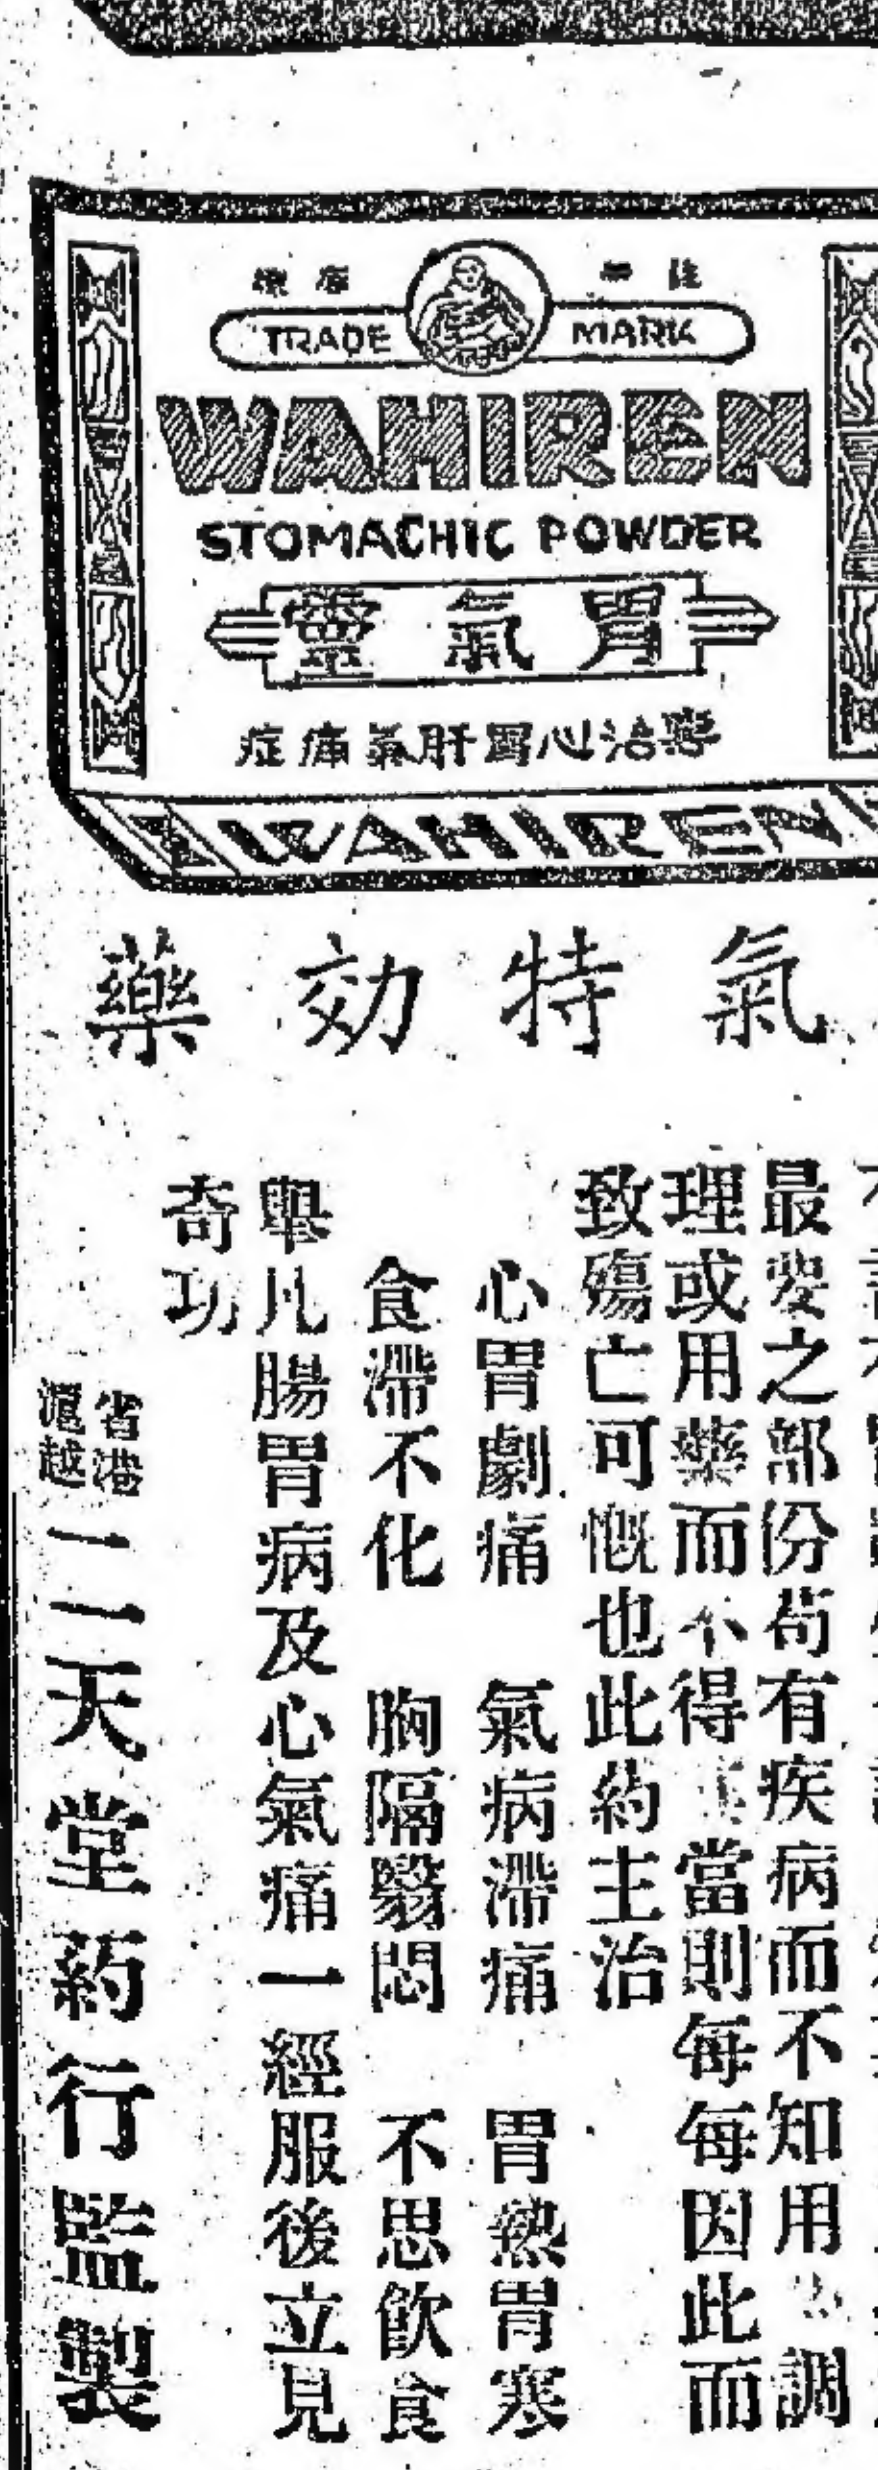 TRADE MARK
WAHIREN
STOMACHIC POWDER
胃氣靈
專治心胃肝氣痛症
WAHIREN
氣特効藥
最要之部份苟有疾病而不知用調
理或用藥而不得當則每每因此而
致殤亡可慨也此葯主治
心胃劇痛 氣病滯痛 胃熱胃寒
食滯不化 胸隔翳悶 不思飲食
舉凡腸胃病及心氣痛一經服後立見
奇功
省港
滬越
二天堂葯行監製